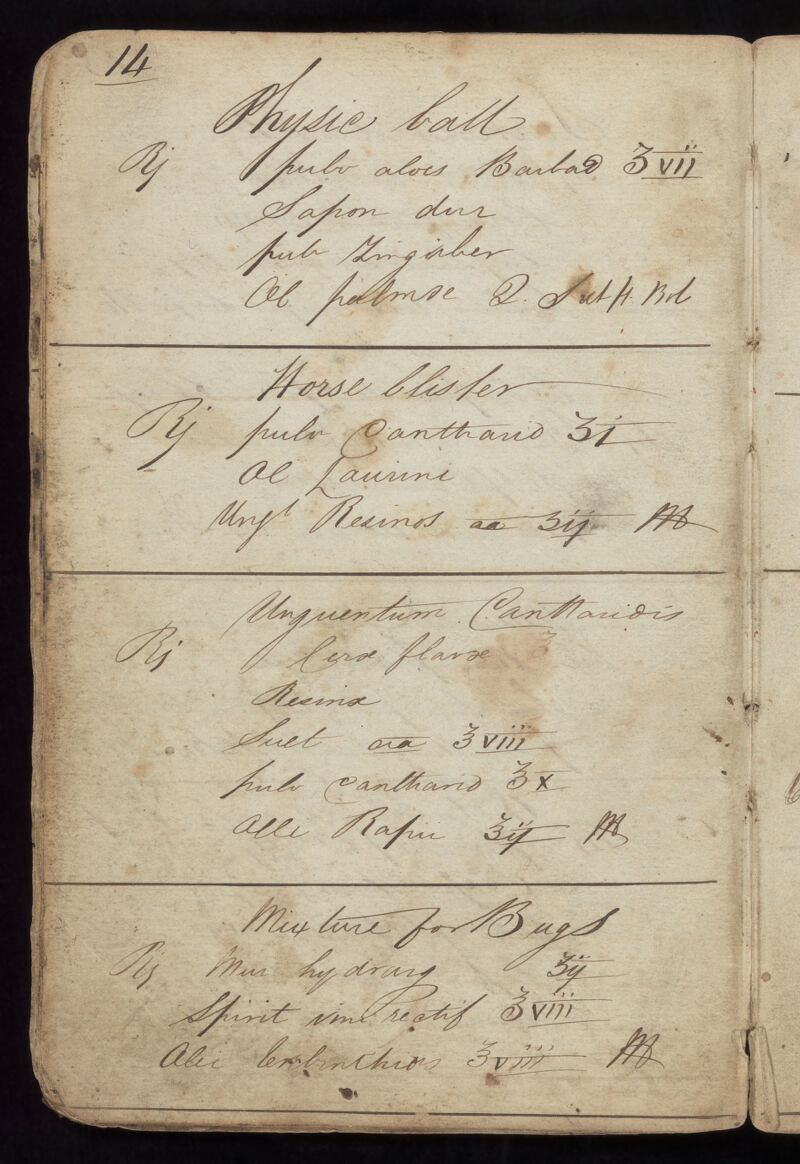 14
Physic ball
Rj pulv aloes Barbad ʒvii
Sapon dur
pulv Zingiber
Ol palmæ Q. S ut ft. Bol
Horse blister
Rj pulv Cantharid ʒi
Ol Laurini
Ungt Resinos aa ʒij M
Unguentum Cantharidis
Rj Ceræ flavæ
Resinæ
Suet aa ℥viii
pulv Cantharid ℥x
Olei Rapii ℥ij M
Mixture for Bugs
Rj Mur hydrarg ʒij
Spirit vini rectif ℥viii
Olei terbinthias ℥viii M